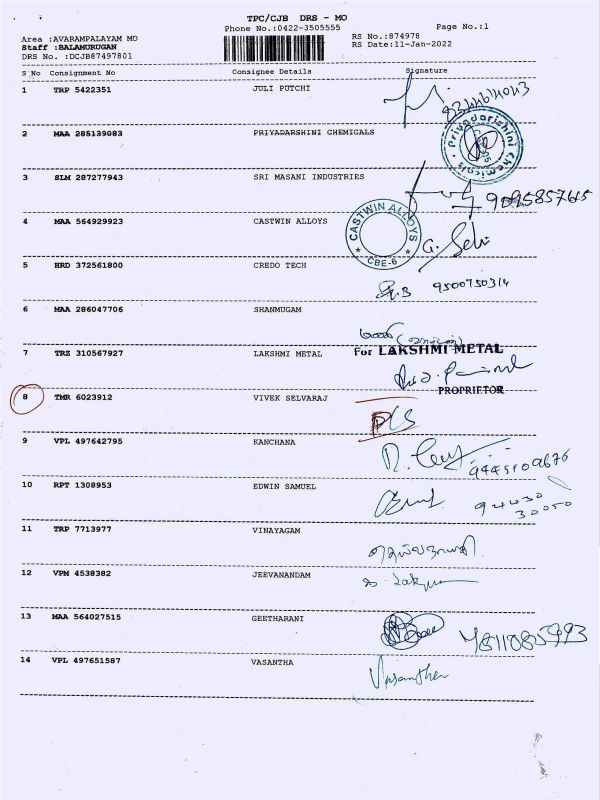 TPC/CJB DRS - MO
Phone No.:0422-3505555 Page No.:1
Area :AVARAMPALAYAM MO RS No.:874978
Staff :BALAMURUGAN RS Date:11-Jan-2022
DRS No. :DCJB87497801
S No Consignment No Consignee Details Signature
1 TRP 5422351 JULI PUTCHI
2 MAA 285139083 PRIYADARSHINI CHEMICALS
Priyadarshini Chemicals
3 SLM 287277943 SRI MASANI INDUSTRIES
9095857615
4 MAA 564929923 CASTWIN ALLOYS
CASTWIN ALLOYS
CBE-6
G. Selvi
5 HRD 372561800 CREDO TECH
9500750314
6 MAA 286047706 SHANMUGAM
7 TRZ 310567927 LAKSHMI METAL
For LAKSHMI METAL
PROPRIETOR
8 TMR 6023912 VIVEK SELVARAJ
9 VPL 497642795 KANCHANA
9445109676
10 RPT 1308953 EDWIN SAMUEL
94430
30050
11 TRP 7713977 VINAYAGAM
12 VPM 4538382 JEEVANANDAM
13 MAA 564027515 GEETHARANI
14 VPL 497651587 VASANTHA
Vasantha